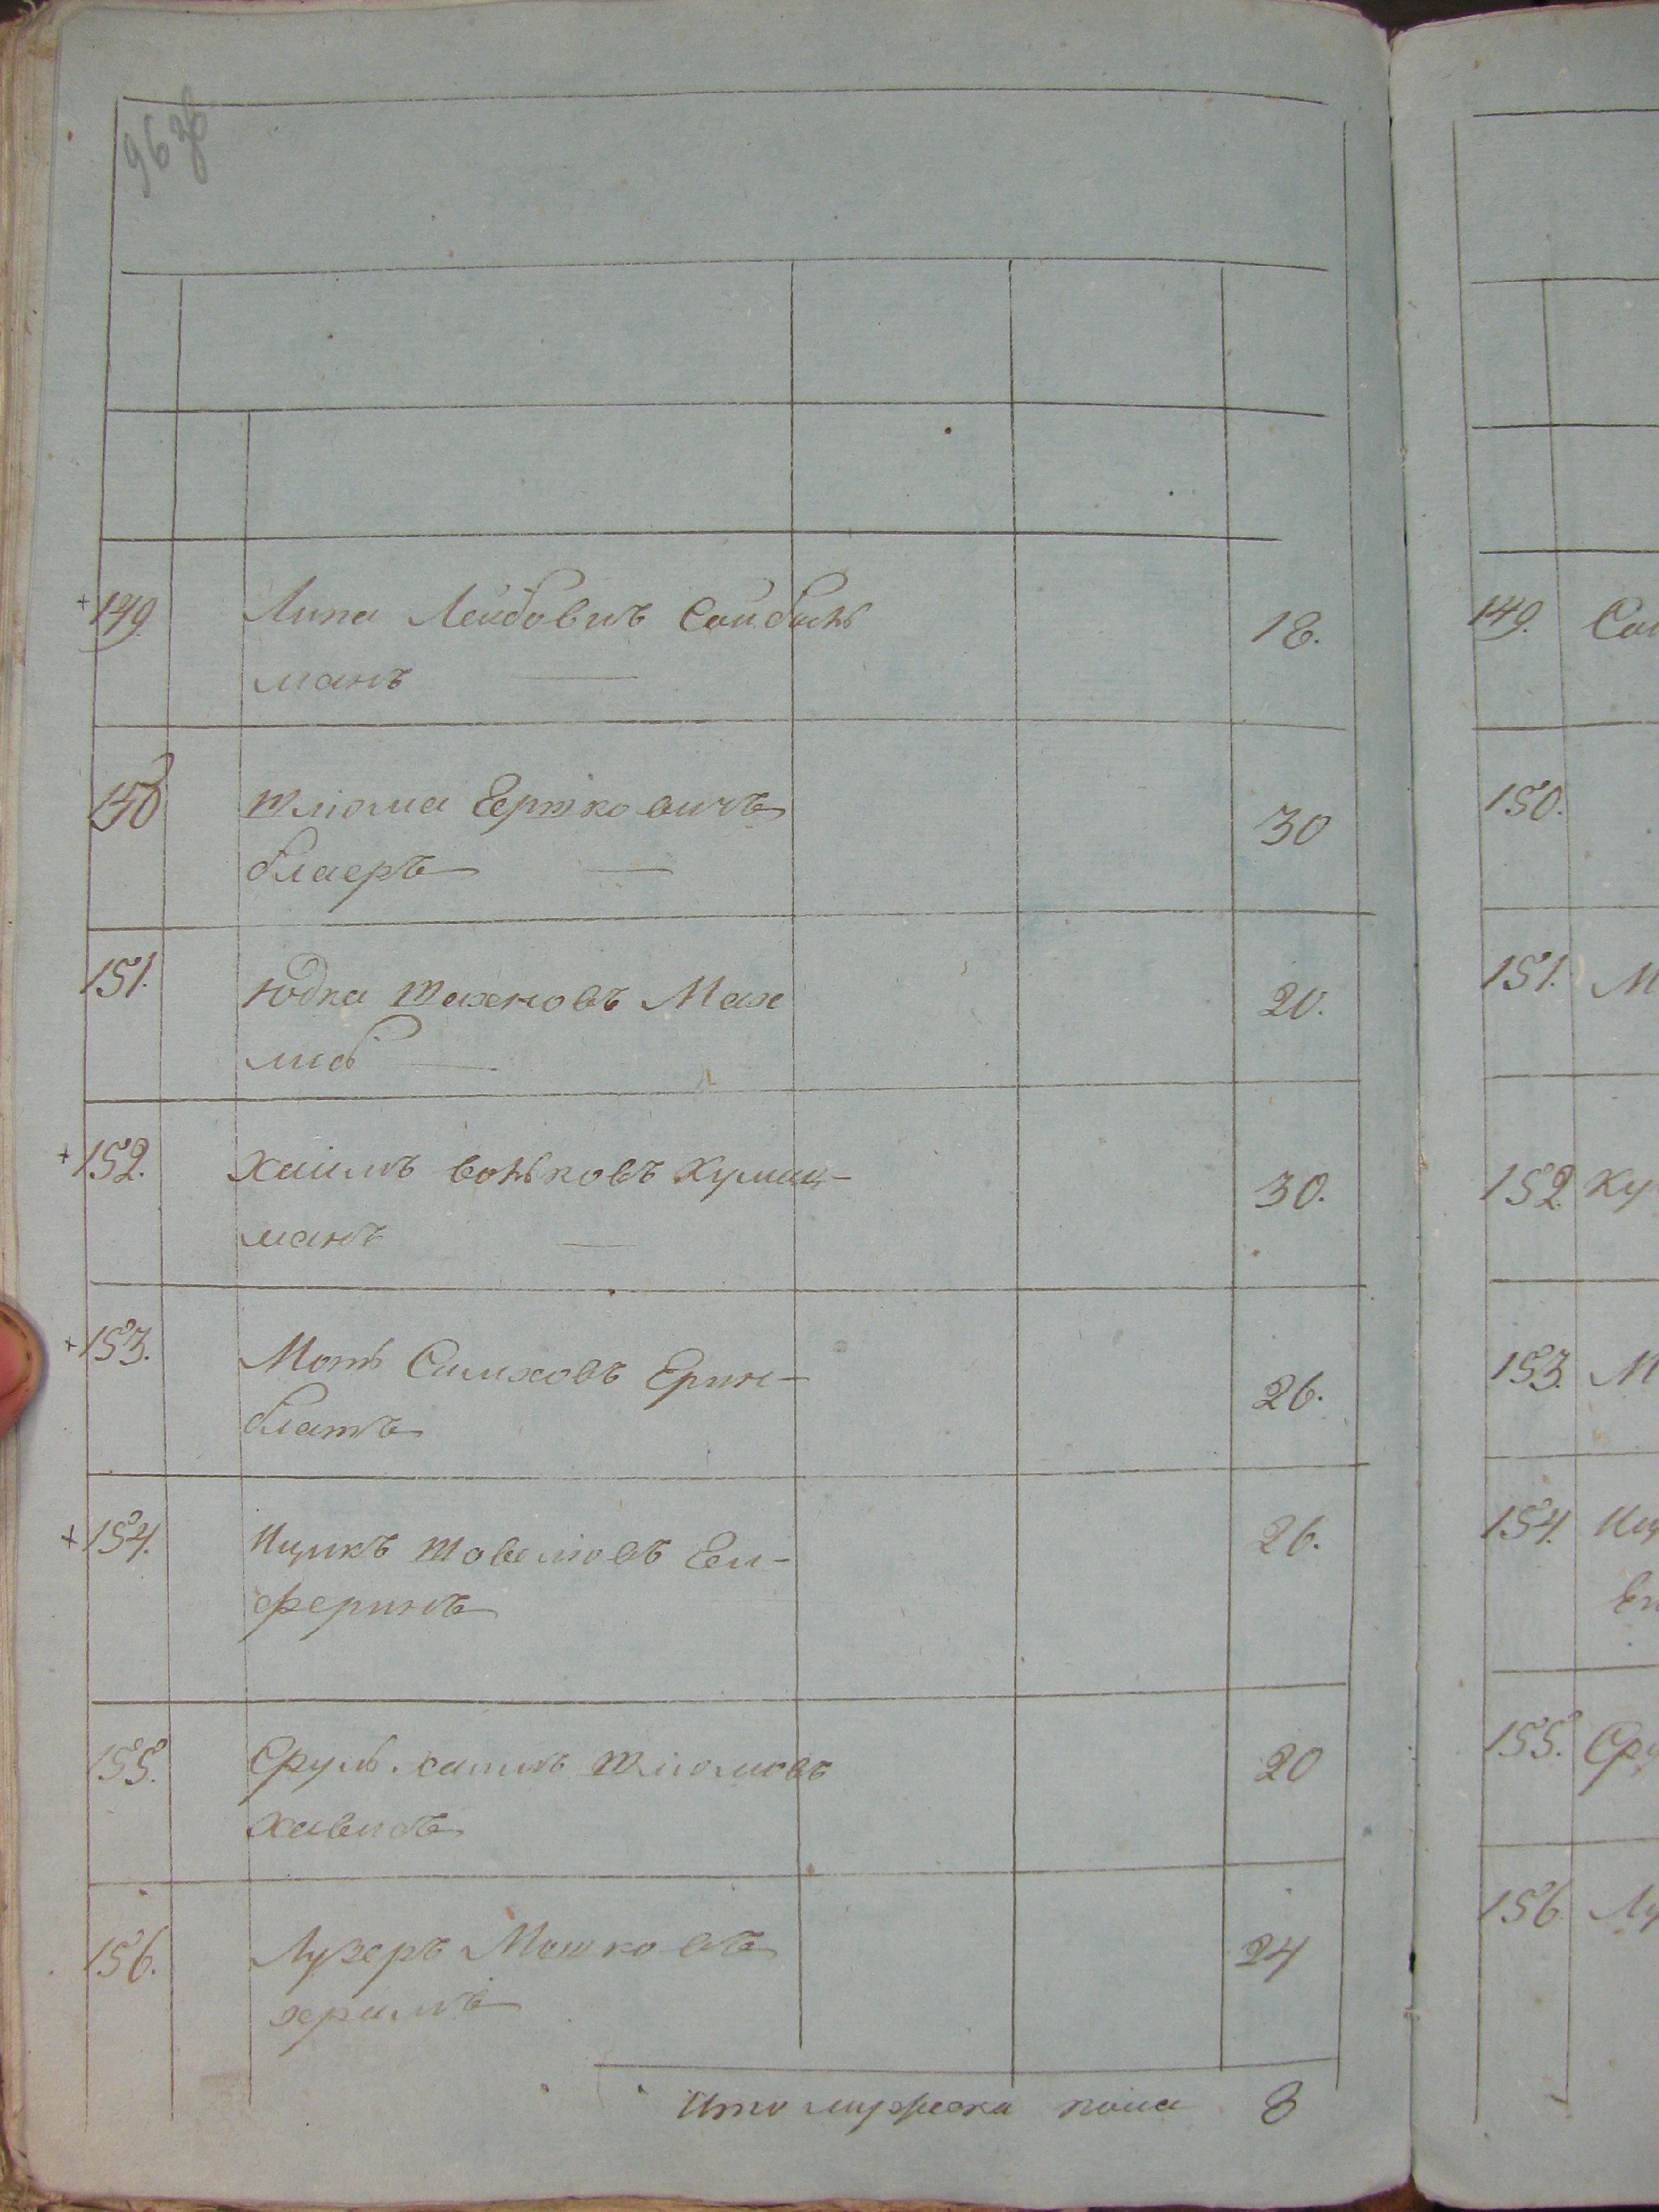 963б
+149. Липа Лейбовичъ Сойбель
манъ 18.
150 Шлиома Берковичъ
блаеръ 30
151. Юдка Шахновъ Мах
либ 20.
+152. Хаимъ Волковъ Кумец-
манъ 30.
+153. Мот Симховъ Ерин-
блатъ 26.
+154. Ицикъ Шовелиовъ Еп-
феринъ 26.
155. Сруль хаимъ Шлиомовъ
20
156. Лузеръ Мошковъ
24
Итого мужеска пола 8
149. Сой
150.
151. М
152 Ку
153. М
154. Иц
Еп
155. Сру
156. Лу